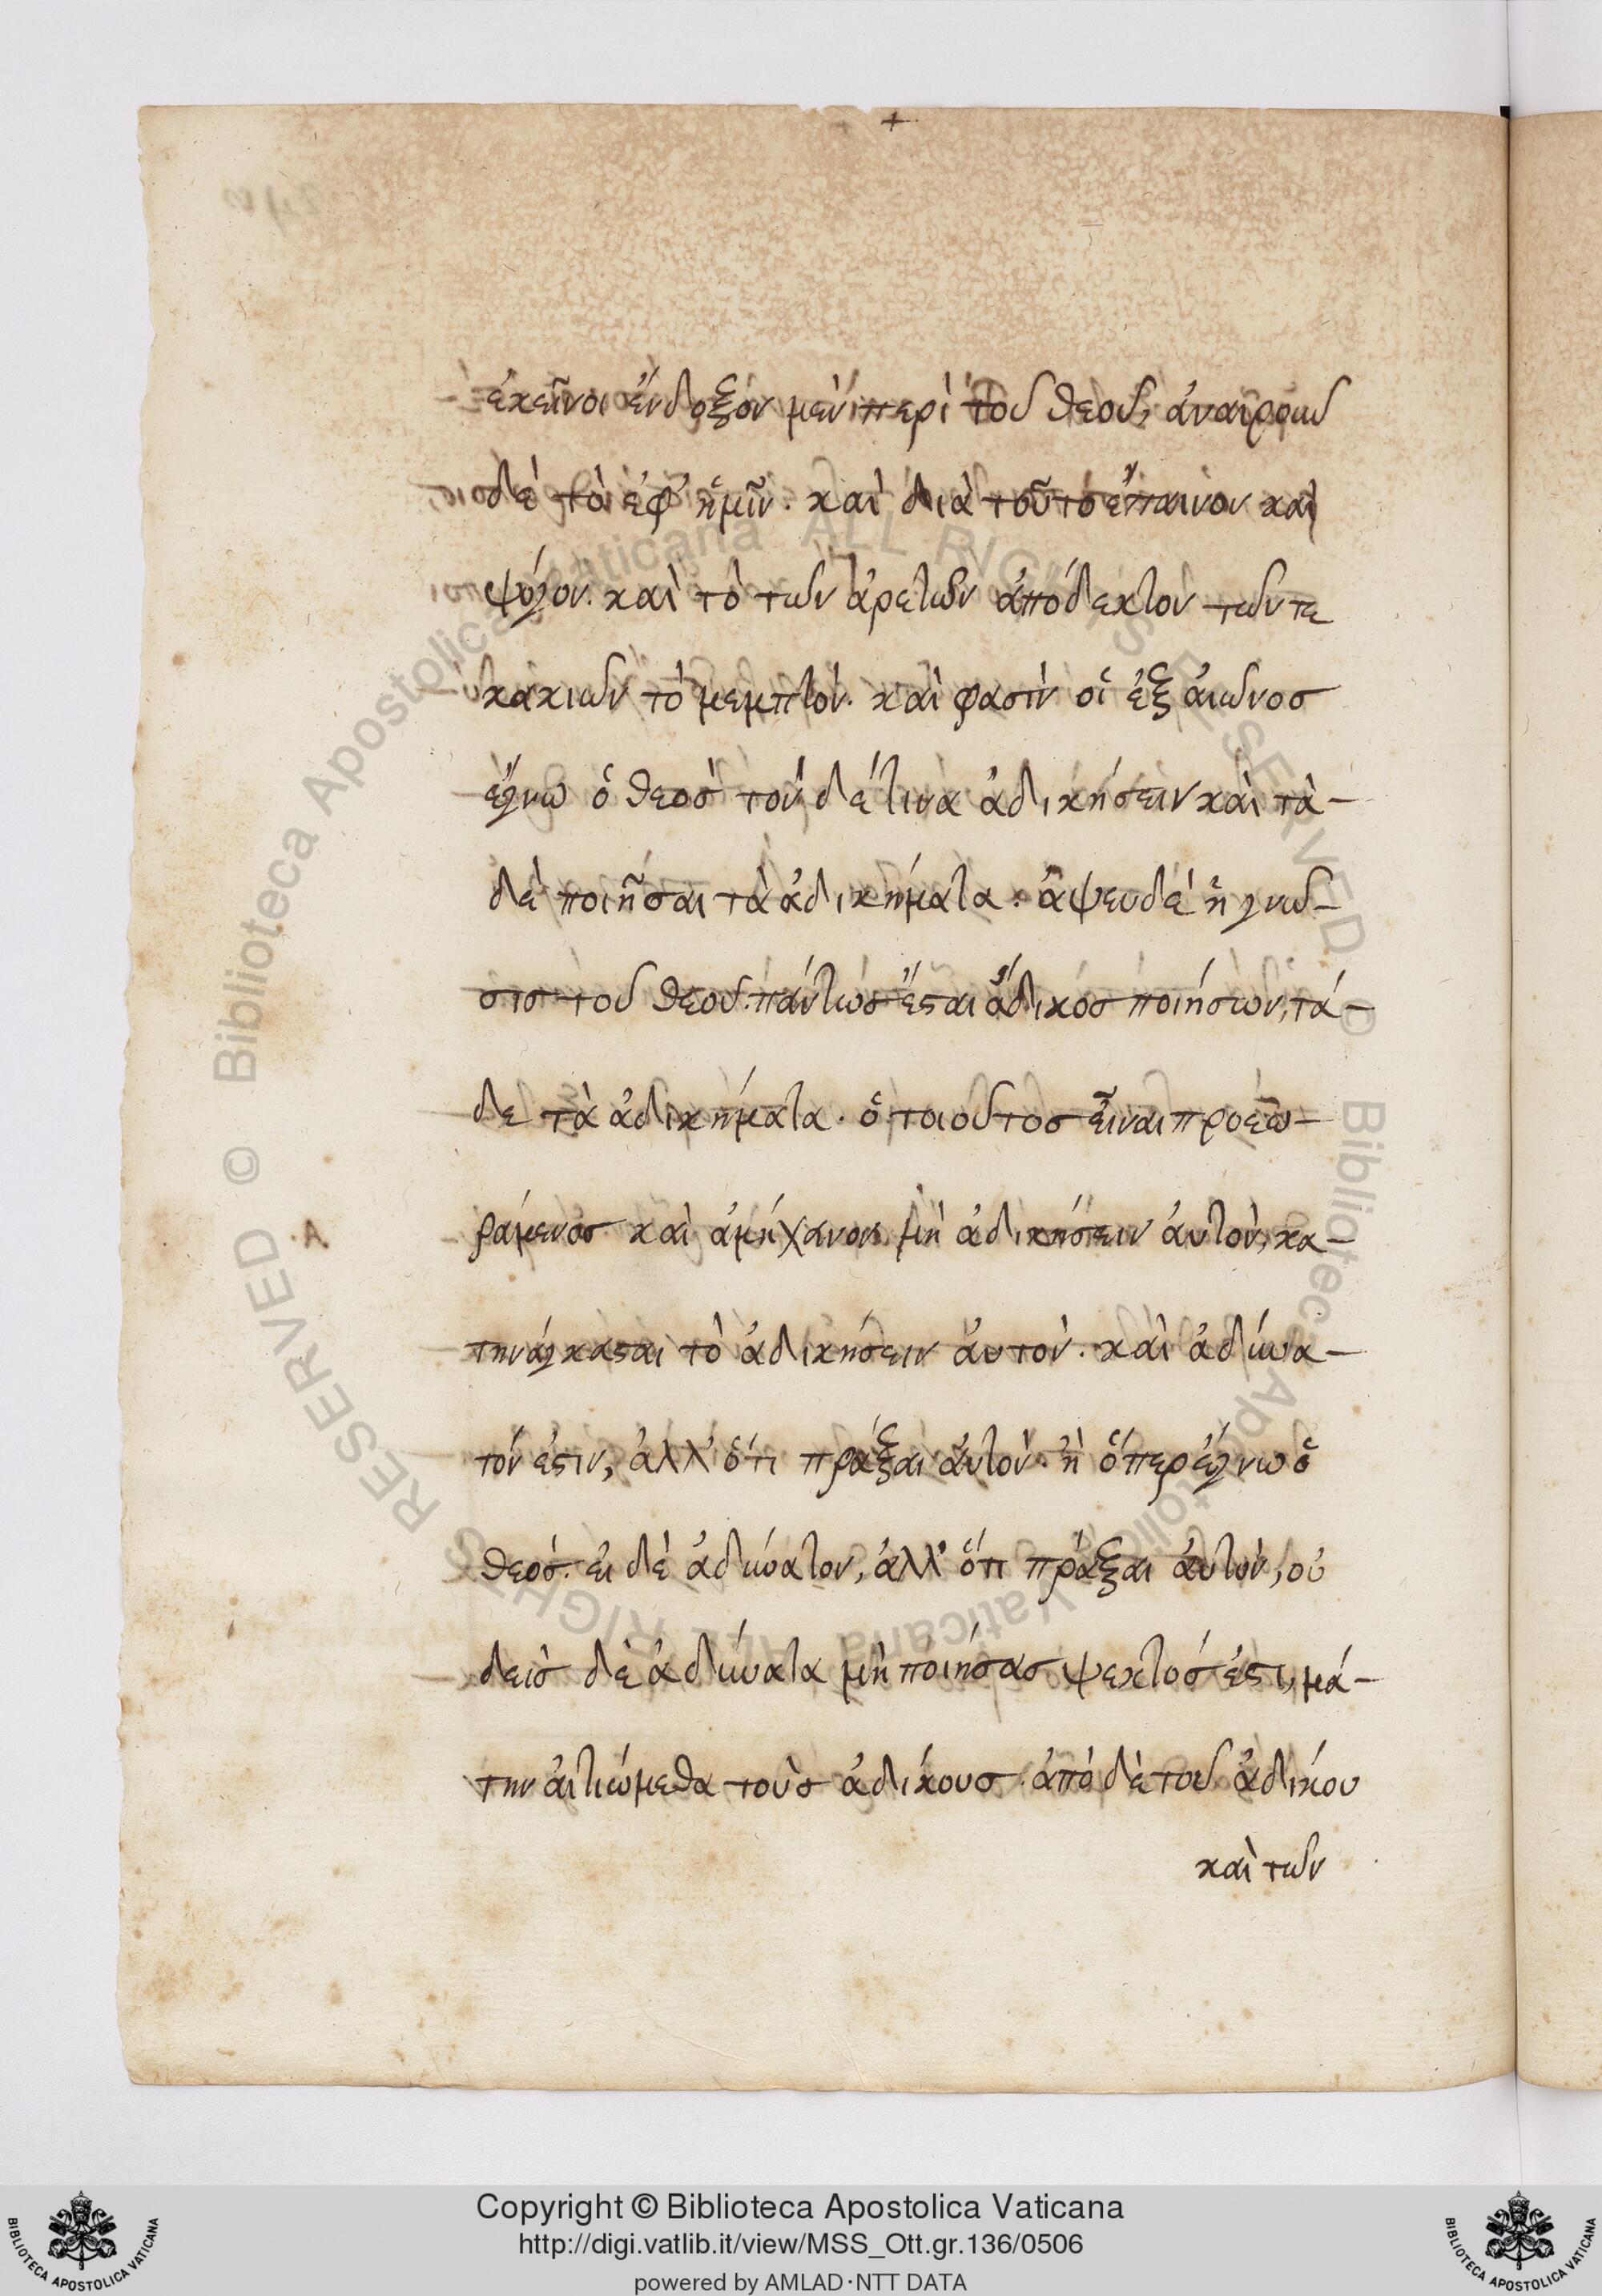 ἐκεῖνοι ἔνδοξόν μὲν περὶ τοῦ θεοῦ, ἀναιροῦ
δὲ τὸ ἐφ' ἡμῖν. καὶ διὰ τοῦτο ἔπαινον καὶ
ψόγον. καὶ τὸ τῶν ἀρετῶν ἀπόδεκτον τῶν τε
κακιῶν τὸ μεμπτόν. καὶ φασὶν οἱ ἐξ αἰῶνοσ
ἔγνω ὁ θεοσ τόν δέ τινα ἀδικήσειν καὶ τὰ-
δὲ ποιῆσαι τὰ ἀδικήματα. ἀψευδὲ ἡ γνῶ-
σισ τοῦ θεοῦ. πάντωσ ἔσται ἄδικοσ ποιήσων, τά-
δε τὰ ἀδικήματα. ὁ τοιοῦτοσ εἶναι προεω-
ραμενοσ καὶ ἀμήχανον μὴ ἀδικήσειν ἀυτόν, κα-
τηνάγκασται τὸ ἀδικήσειν ἀυτον. καὶ ἀδύνα-
τόν ἐστιν, ἀλλ' ὅτι πράξαι ἀυτὸν. ἢ ὅπερ ἔγνω ὁ
θεοσ. ει δὲ ἀδύνατον, ἀλλ' ὅτι πράξαι ἀυτὸν, οὐ
δεισ δὲ ἀδύνατα μὴ ποιήσασ ψεκτοσ ἐστι, μά-
την ἀιτιώμεθα τοὺσ ἀδίκουσ. ἀπὸ δὲ τοῦ ἀδίκου
καὶ τῶν
Copyright © Biblioteca Apostolica Vaticana
http://digi.vatlib.it/view/MSS_Ott.gr.136/0506
powered by AMLAD·NTT DATA
© Biblioteca Apostolica Vaticana ALL RIGHTS RESERVED © Biblioteca Apostolica Vaticana ALL RIGHTS RESERVED
BIBLIOTECA APOSTOLICA VATICANA
BIBLIOTECA APOSTOLICA VATICANA